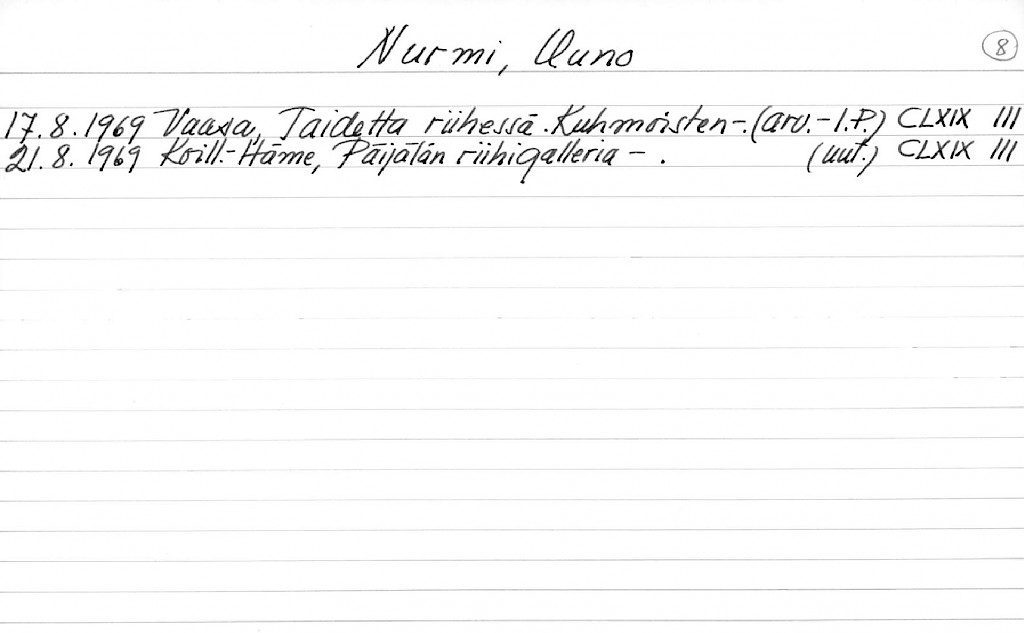 Nurmi, Uuno
8
17.8.1969 Vaasa, Taidetta riihessä. Kuhmoisten-. (arv.- I.P.) CLXIX III
21.8.1969 Koill.-Häme, Päijälän riihigalleria - . (uut.) CLXIX III